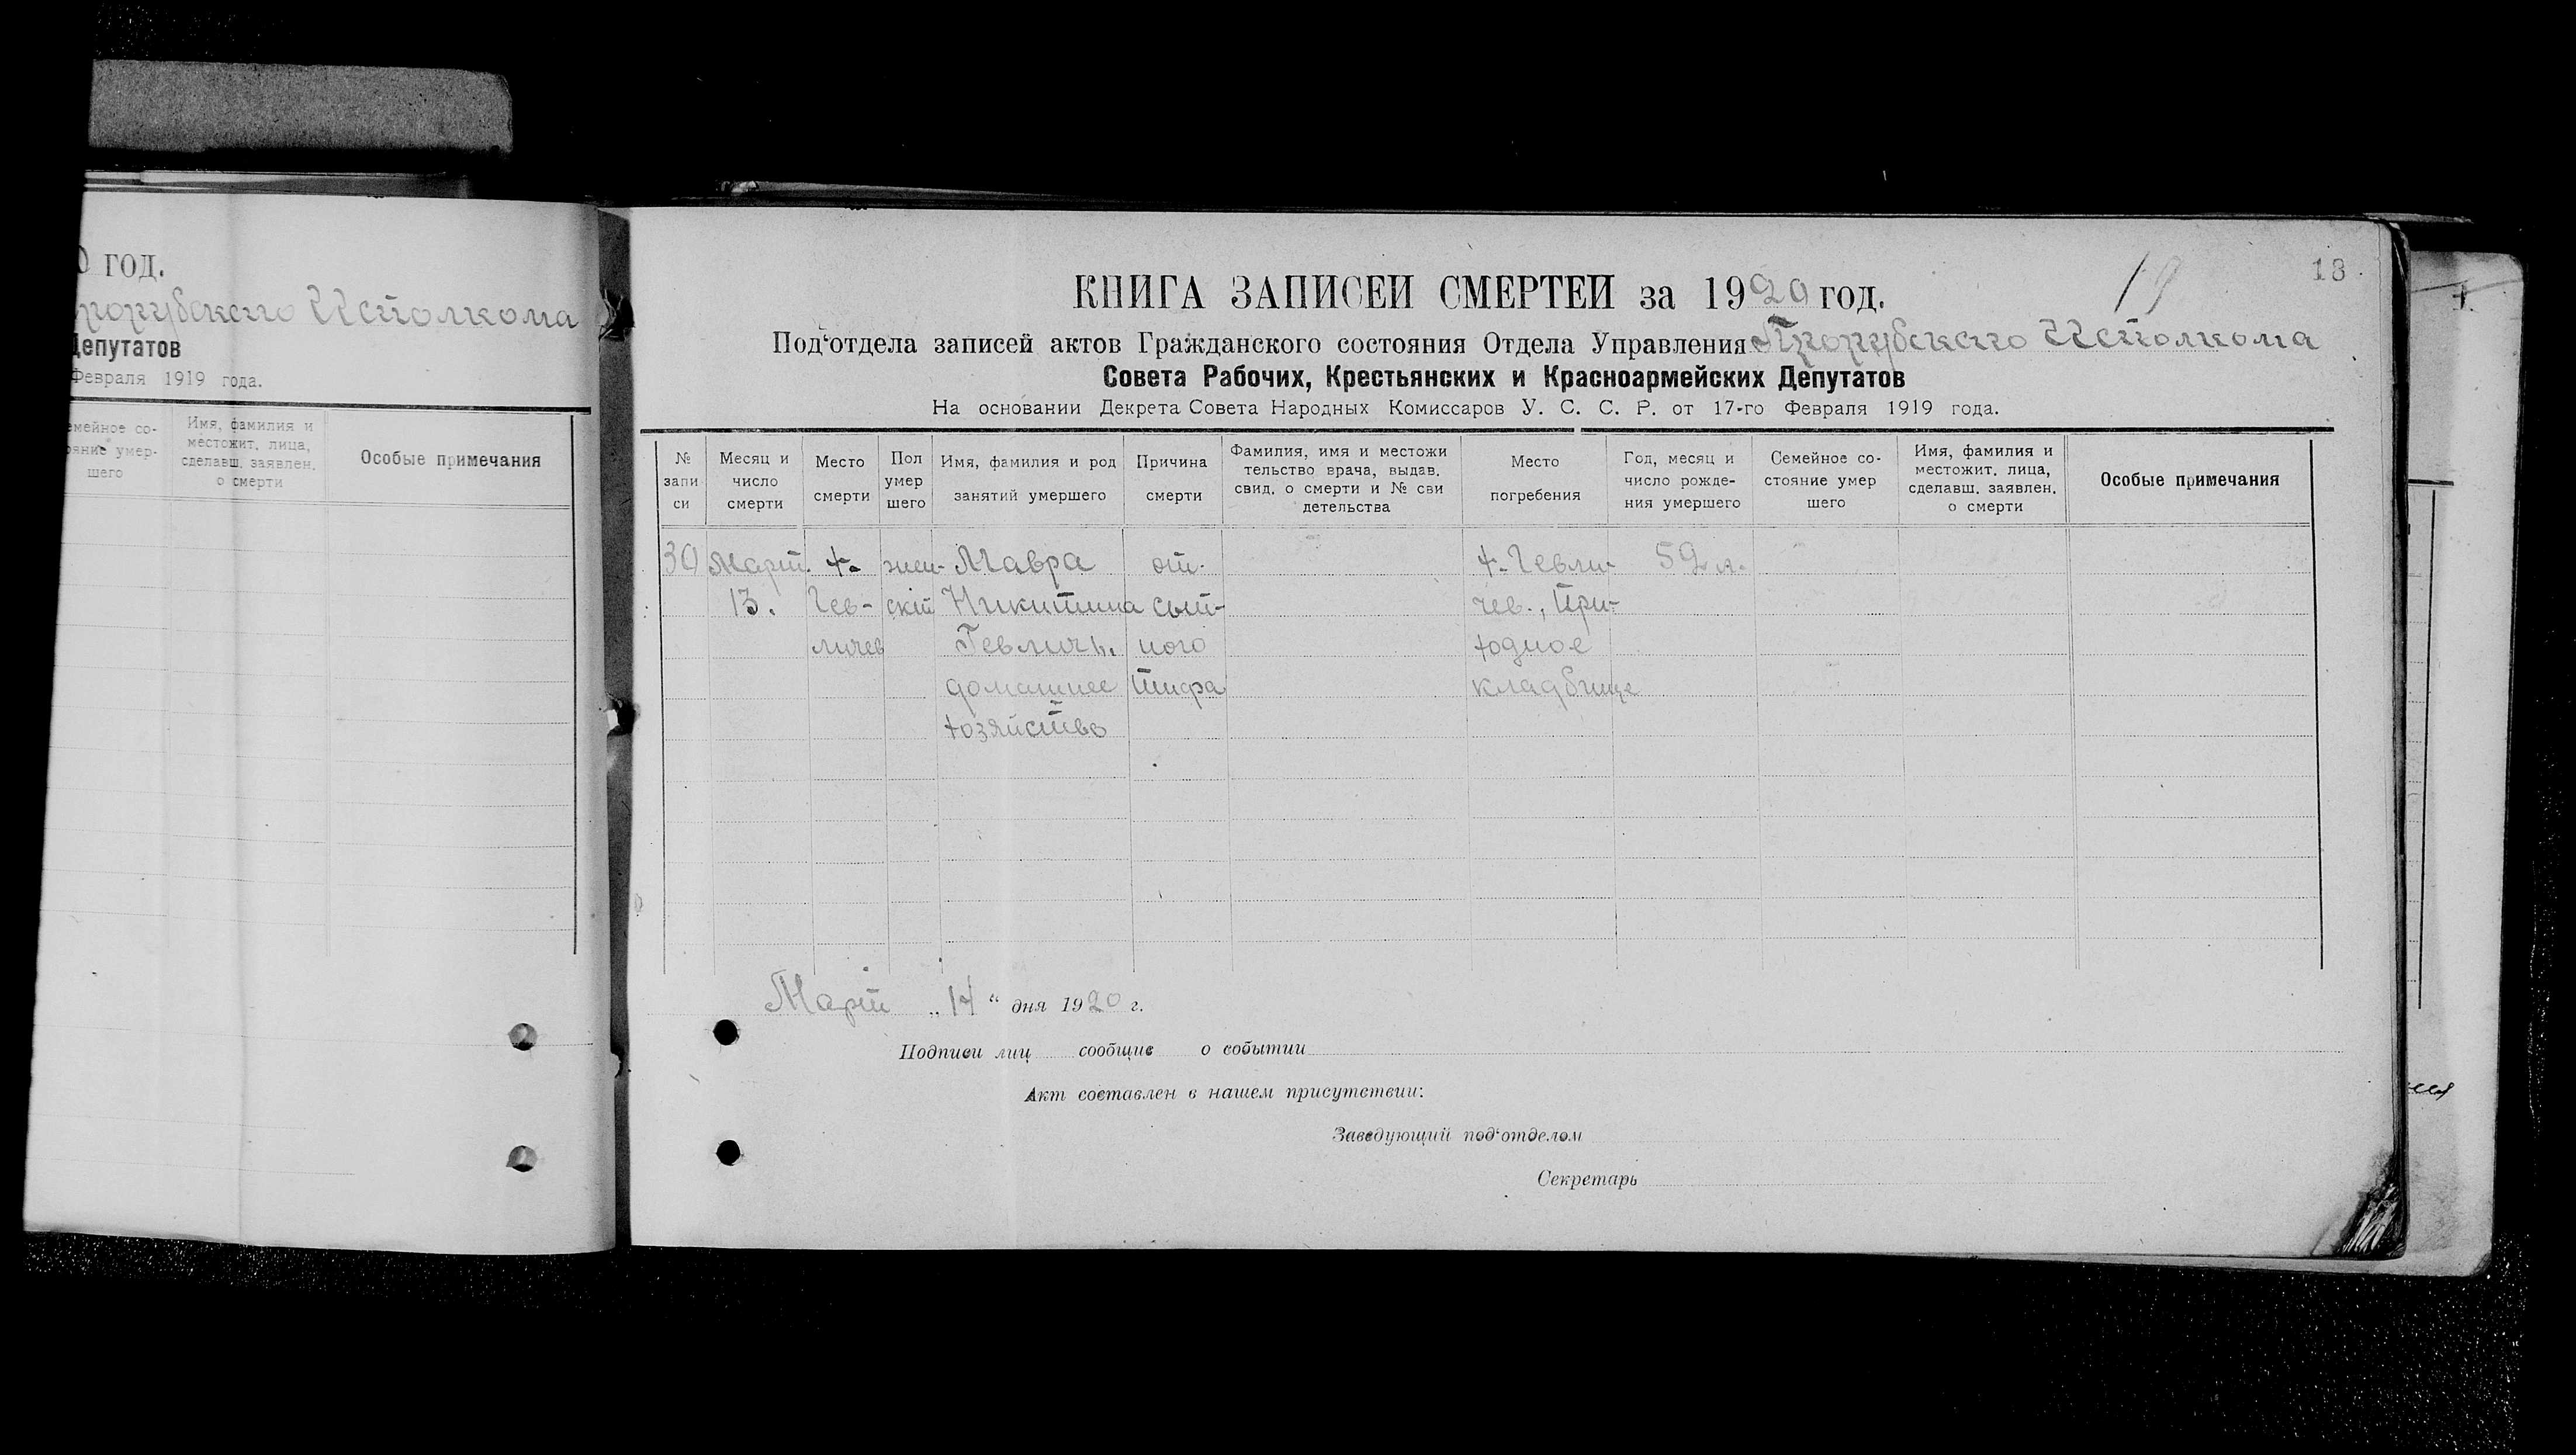 0 ГОД.
Исполкома
Депутатов
Февраля 1919 года.
семейное со-
ояние умер-
шего
Имя, фамилия и
местожит. лица,
сделавш. заявлен.
о смерти
Особые примечания
19
18
КНИГА ЗАПИСЕЙ СМЕРТЕЙ за 1920 год.
Под'отдела записей актов Гражданского состояния Отдела Управления Исполкома
Совета Рабочих, Крестьянских и Красноармейских Депутатов
На основании Декрета Совета Народных Комиссаров У. С. С. Р. от 17-го Февраля 1919 года.
№
запи
си
Месяц и
число
смерти
Место
смерти
Пол
умер
шего
Имя, фамилия и род
занятий умершего
Причина
смерти
Фамилия, имя и местожи
тельство врача, выдав.
свид. о смерти и № сви
детельства
Место
погребения
Год, месяц и
число рожде-
ния умершего
Семейное со-
стояние умер
шего
Имя, фамилия и
местожит. лица,
сделавш. заявлен.
о смерти
Особые примечания
30
Март.
13.
х.
Гев-
личев
жен-
скій
Мавра
Никитина
Гевличъ.
домашнее
хозяйство
от.
сып-
ного
тифа
х. Гевли-
чев., при-
ходное
кладбище
59 л.
Март „14“ дня 1920 г.
Подписи лиц сообщив о событии
Акт составлен в нашем присутствии:
Заведующий под'отделом
Секретарь